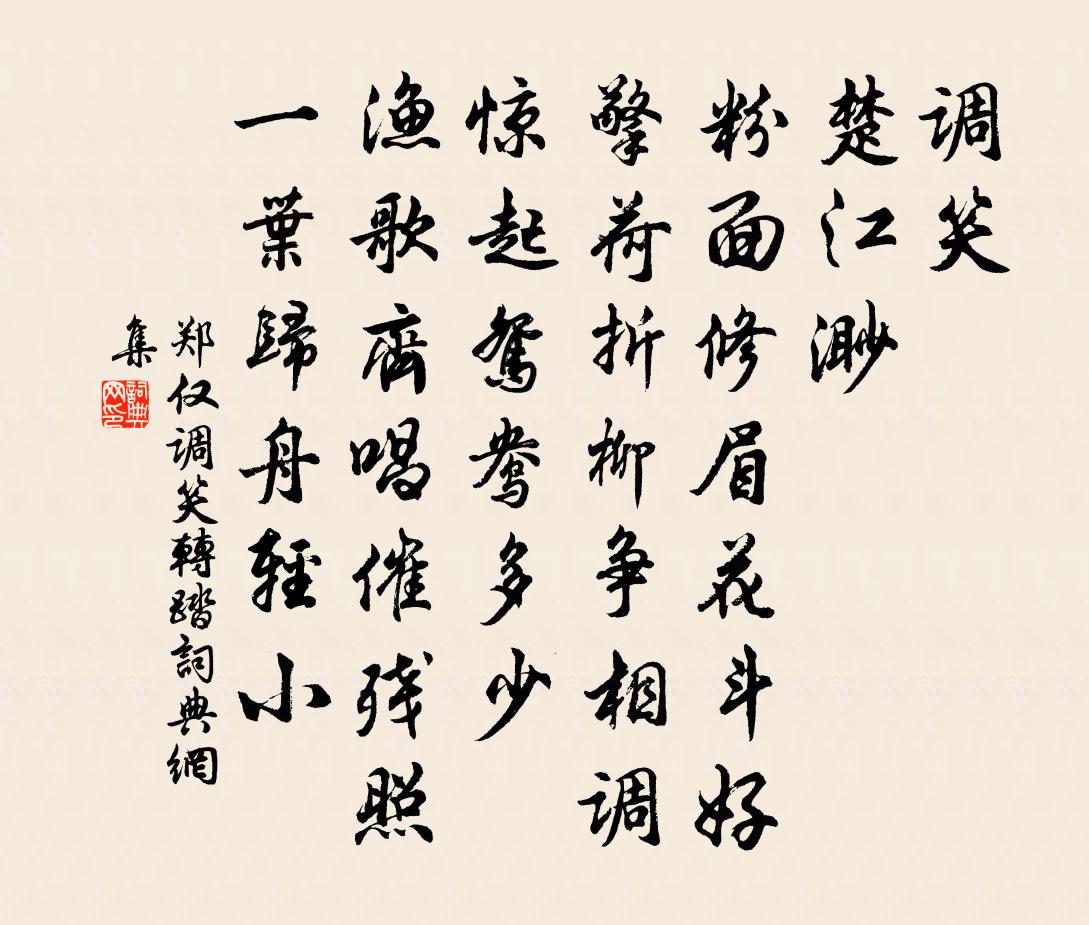 调笑
楚江渺
粉面修眉花斗好
擎荷折柳争相调
惊起鸳鸯多少
渔歌齊唱催残照
一葉歸舟輕小
郑仅调笑轉踏詞典網
集
詞典
网印